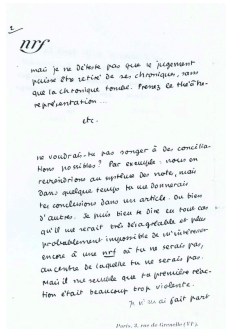 2
nrf
mais je ne déteste pas que le jugement
puisse être retiré de ses chroniques, sans
que la chronique tombe. Prenez le théâtre-
représentation ...
etc.
ne voudrais-tu pas songer à des concilia-
tions possibles ? Par exemple : nous en
reviendrions au système des notes, mais
dans quelque temps tu me donnerais
tes conclusions dans un article. Ou bien
d'autres. Je puis bien te dire en tout cas
qu'il me serait très désagréable et plus
probablement impossible de m'intéresser
encore à une nrf où tu ne serais pas,
au centre de laquelle tu ne serais pas.
Mais il me semble que ta première réac-
tion était beaucoup trop violente.
Je n'ai fait part
Paris, 3, rue de Grenelle (VIᵉ).